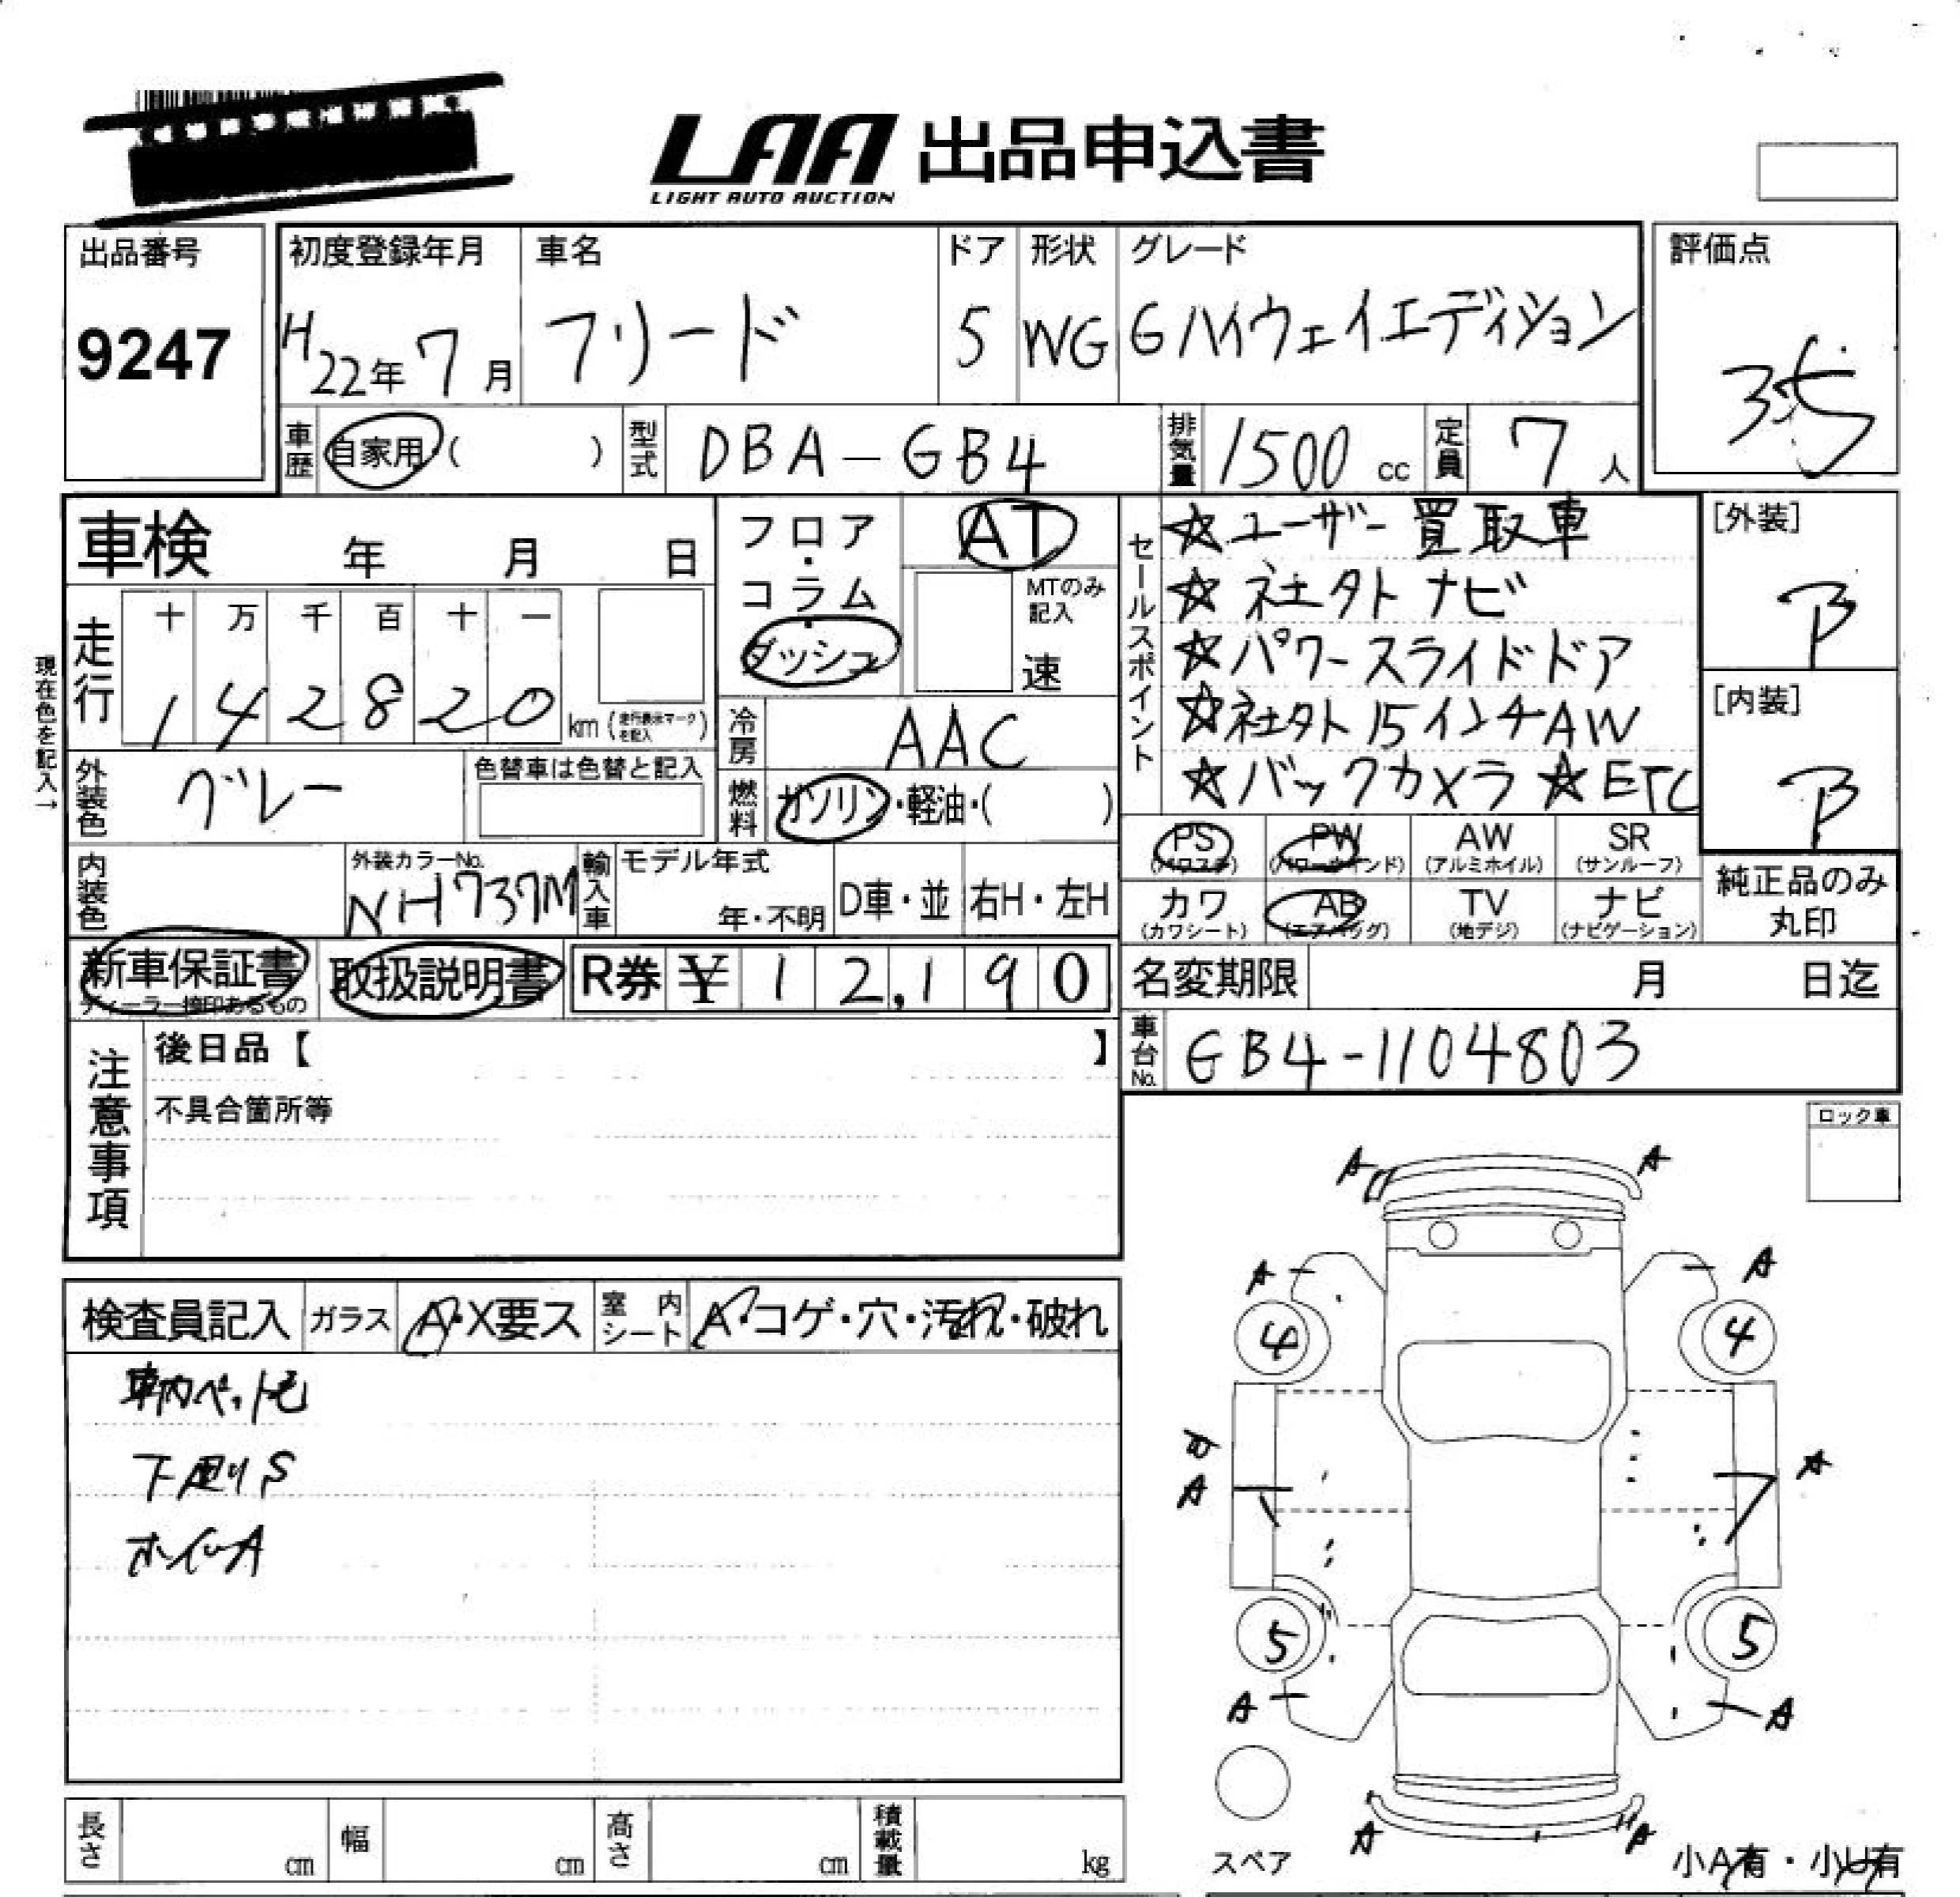 LAA 出品申込書
LIGHT AUTO AUCTION
出品番号
9247
初度登録年月
H22年7月
車名
フリード
ドア
5
形状
WG
グレード
Gハイウェイエディション
評価点
3.5
車歴
自家用( )
型式
DBA-GB4
排気量
1500cc
定員
7人
車検 年 月 日
現在色を記入→
走行
十 万 千 百 十 一
1 4 2 8 2 0 km(走行表示マークを記入)
フロア・コラム・ダッシュ
AT
MTのみ記入
速
冷房
AAC
燃料
ガソリン・軽油・( )
外装色
グレー
色替車は色替と記入
内装色
外装カラーNo.
NH737M
輸入車
モデル年式
年・不明
D車・並
右H・左H
セールスポイント
☆ユーザー買取車
☆社外ナビ
☆パワースライドドア
☆社外15インチAW
☆バックカメラ ☆ETC
[外装]
B
[内装]
B
PS
(パワステ)
PW
(パワーウインド)
AW
(アルミホイル)
SR
(サンルーフ)
カワ
(カワシート)
AB
(エアバッグ)
TV
(地デジ)
ナビ
(ナビゲーション)
純正品のみ丸印
新車保証書
ディーラー捺印あるもの
取扱説明書
R券 ¥12,190
名変期限 月 日迄
車台No.
GB4-1104803
注意事項
後日品【 】
不具合箇所等
ロック車
検査員記入
ガラス
A・X要ス
室内シート
A・コゲ・穴・汚れ・破れ
車内ペット毛
下廻りS
ホイールA
A A
A A
4 4
A A
5 5
A A
A A
スペア
小A有・小U有
長さ cm
幅 cm
高さ cm
積載量 kg